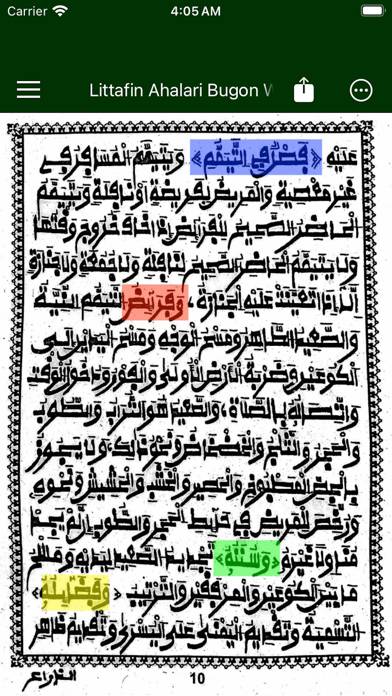 Carrier 4:05 AM
Littafin Ahalari Bugon W
عليه ﴿فصل في التيمم﴾ ويتيمم المسافر في
غير معصية والمريض لفريضة أو نافلة ويتيمم
الحاضر الصحيح للفرائض إذا خاف خروج وقتها
ولا يتيمم الحاضر الصحيح لنافلة ولا جمعة ولا جنازة
إلا إذا تعينت عليه الجنازة، وفرائض التيمم النية
والصعيد الطاهر ومسح الوجه ومسح اليدين إلى
الكوعين وضربة الأرض الأولى والفور ودخول الوقت
واتصاله بالصلاة، والصعيد هو التراب والطوب
والحجر والثلج والخضخاض ونحو ذلك، ولا يجوز
بالجص المطبوخ والحصير والخشب والحشيش ونحوه
ورخص للمريض في حائط الحجر والطوب إن لم يجد
مناولا غيره ﴿وسننه﴾ تجديد الصعيد ليديه ومسح
ما بين الكوعين والمرفقين والترتيب ﴿وفضائله﴾
التسمية وتقديم اليمنى على اليسرى وتقديم ظاهر
الذراع
10